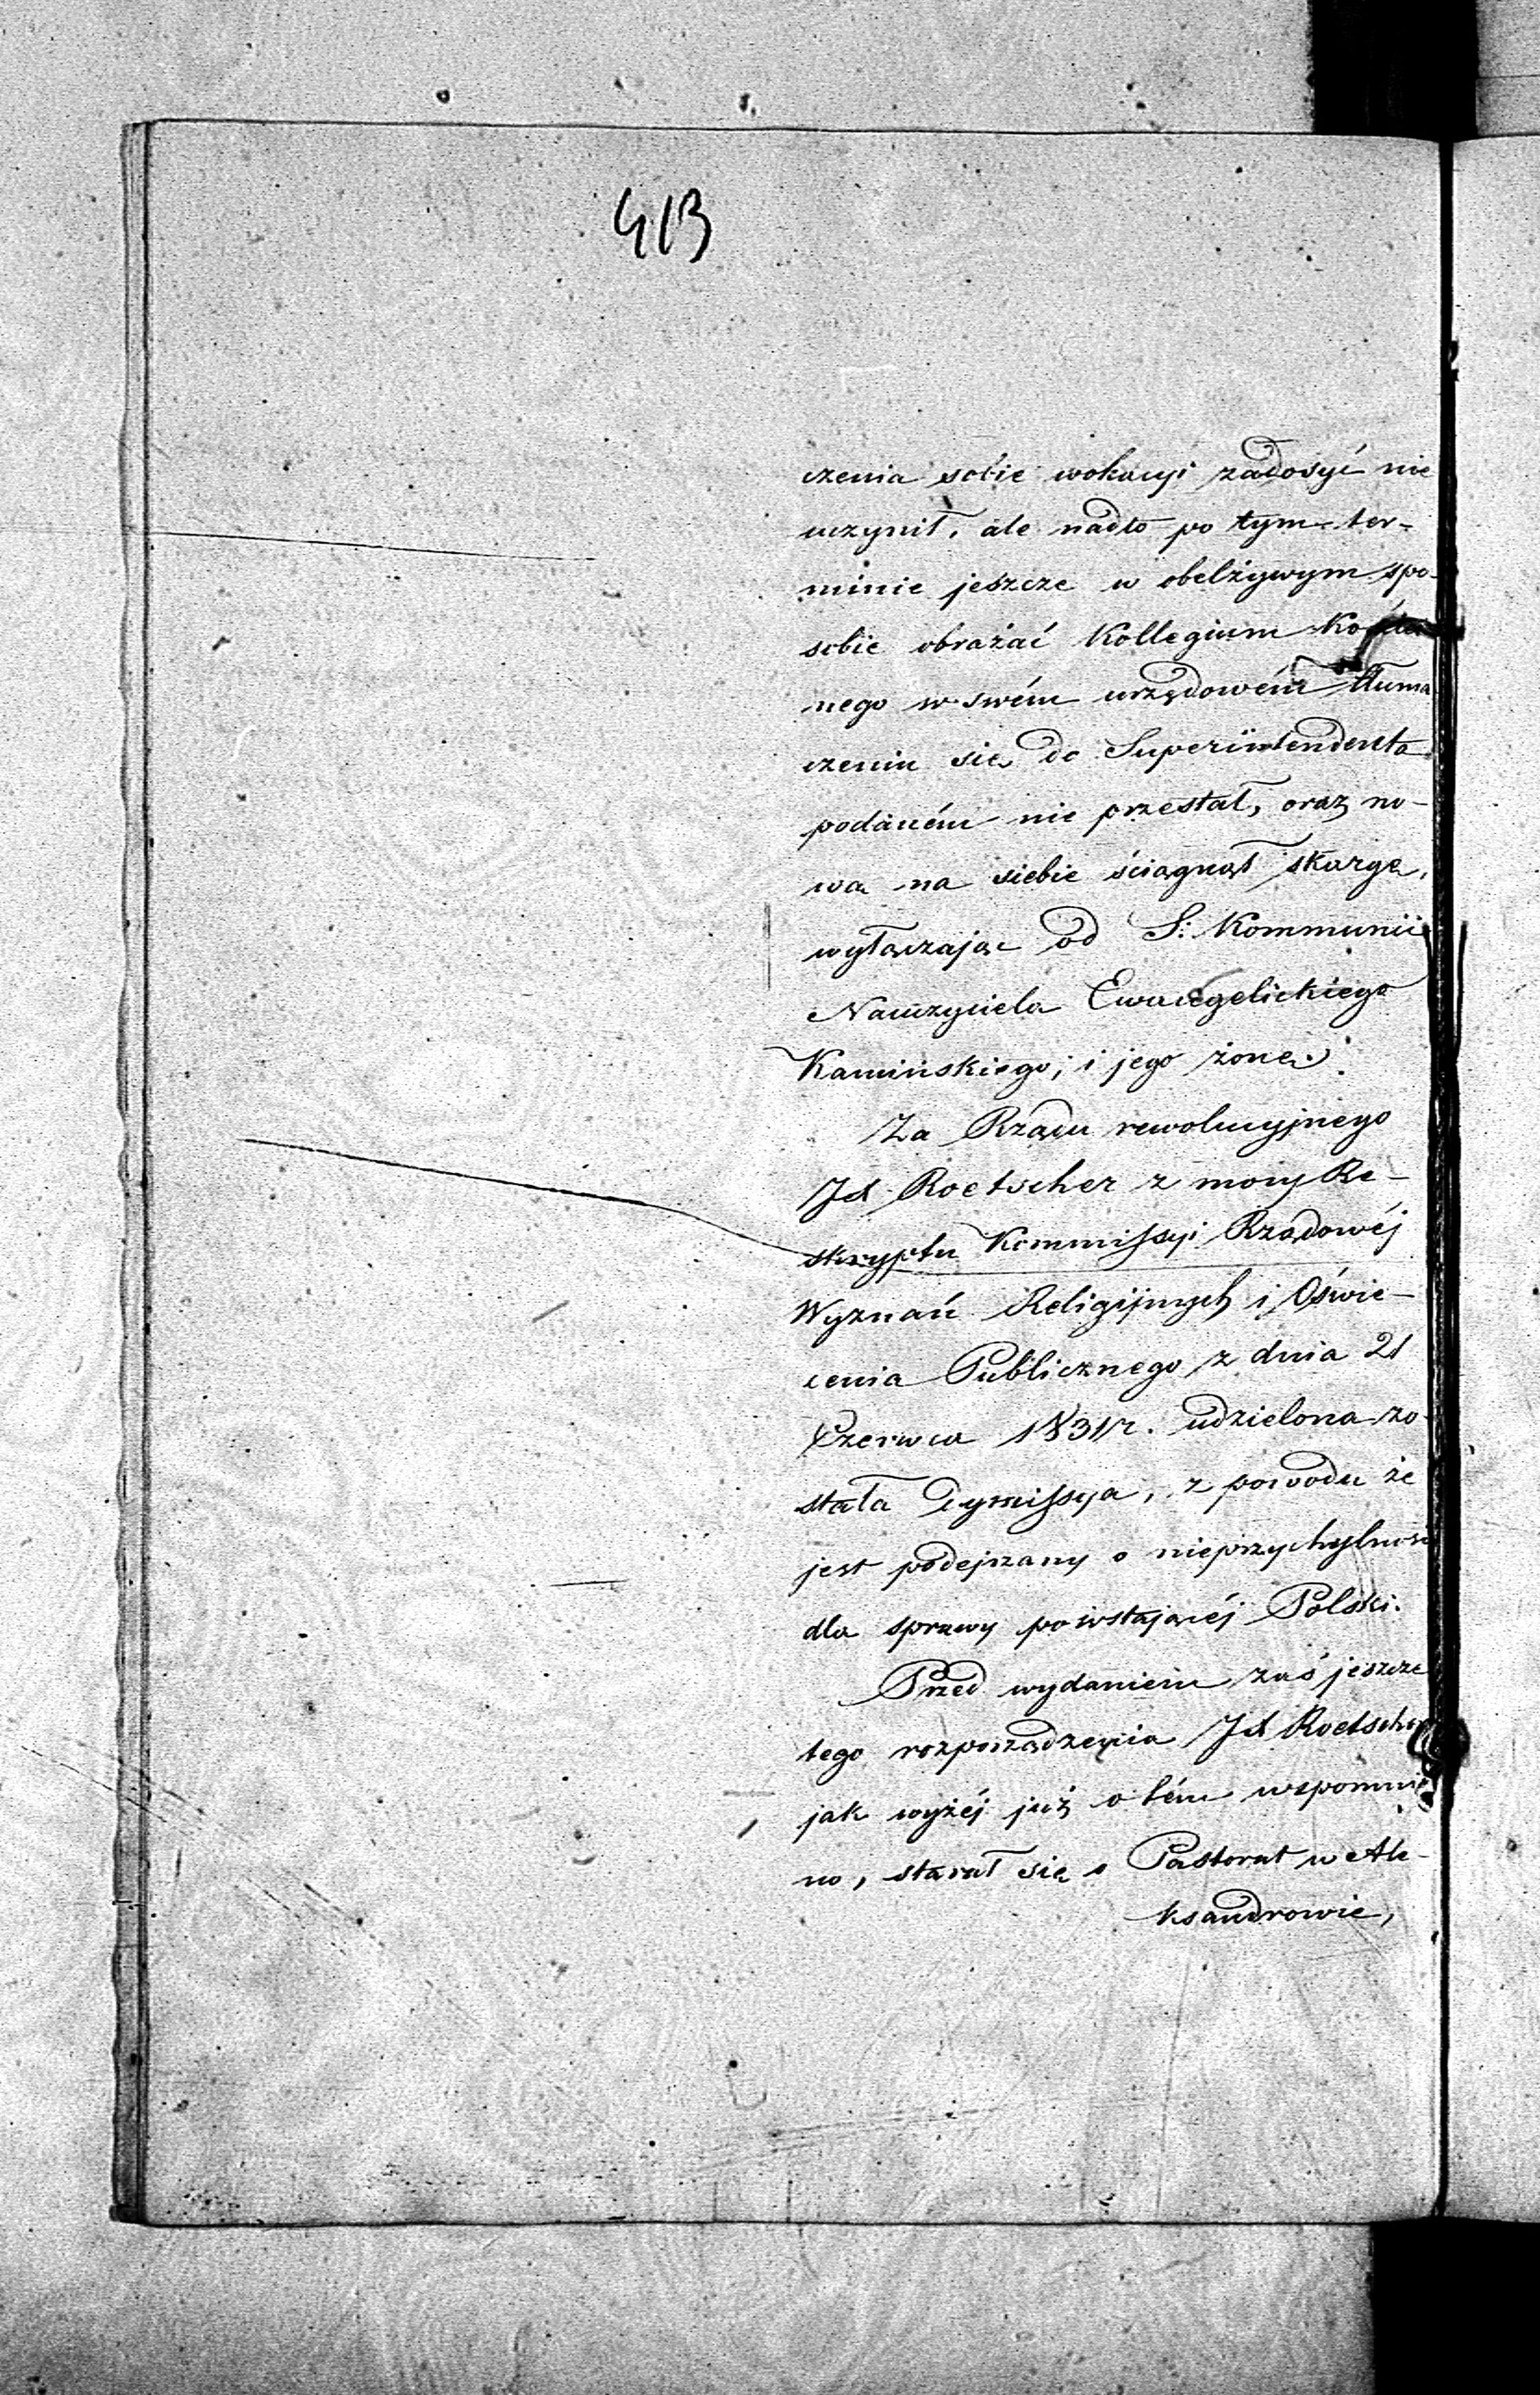 413
czenia sobie wokacyi zadosyć nie
uczynił, ale nadto po tym ter-
minie jeszcze w obelżywym spo-
sobie obrażać Kollegium Kościel
nego w swém urzędowém tłuma
czeniu się do Superintendenta
podaném nie przestał, oraz no-
wą na siebie ściągnął skargę,
wyłączając od S: Kommunii
Nauczyciela Ewangelickiego
Kamińskiego, i jego żonę.
Za Rządu rewolucyjnego
Jd Roetscher z mocy Re-
skryptu Kommissyi Rządowéj
Wyznań Religijnych i Oświe-
cenia Publicznego z dnia 21
Czerwca 1831 r. udzielona zo-
stała Dymissya, z powodu że
jest podejrzany o nieprzychylność
dla sprawy powstającéj Polski.
Przed wydaniem zaś jeszcze
tego rozporządzenia Jd Roetscher
jak wyżéj już o tém wspomnia
no, starał się o Pastorat w Ale-
ksandrowie,